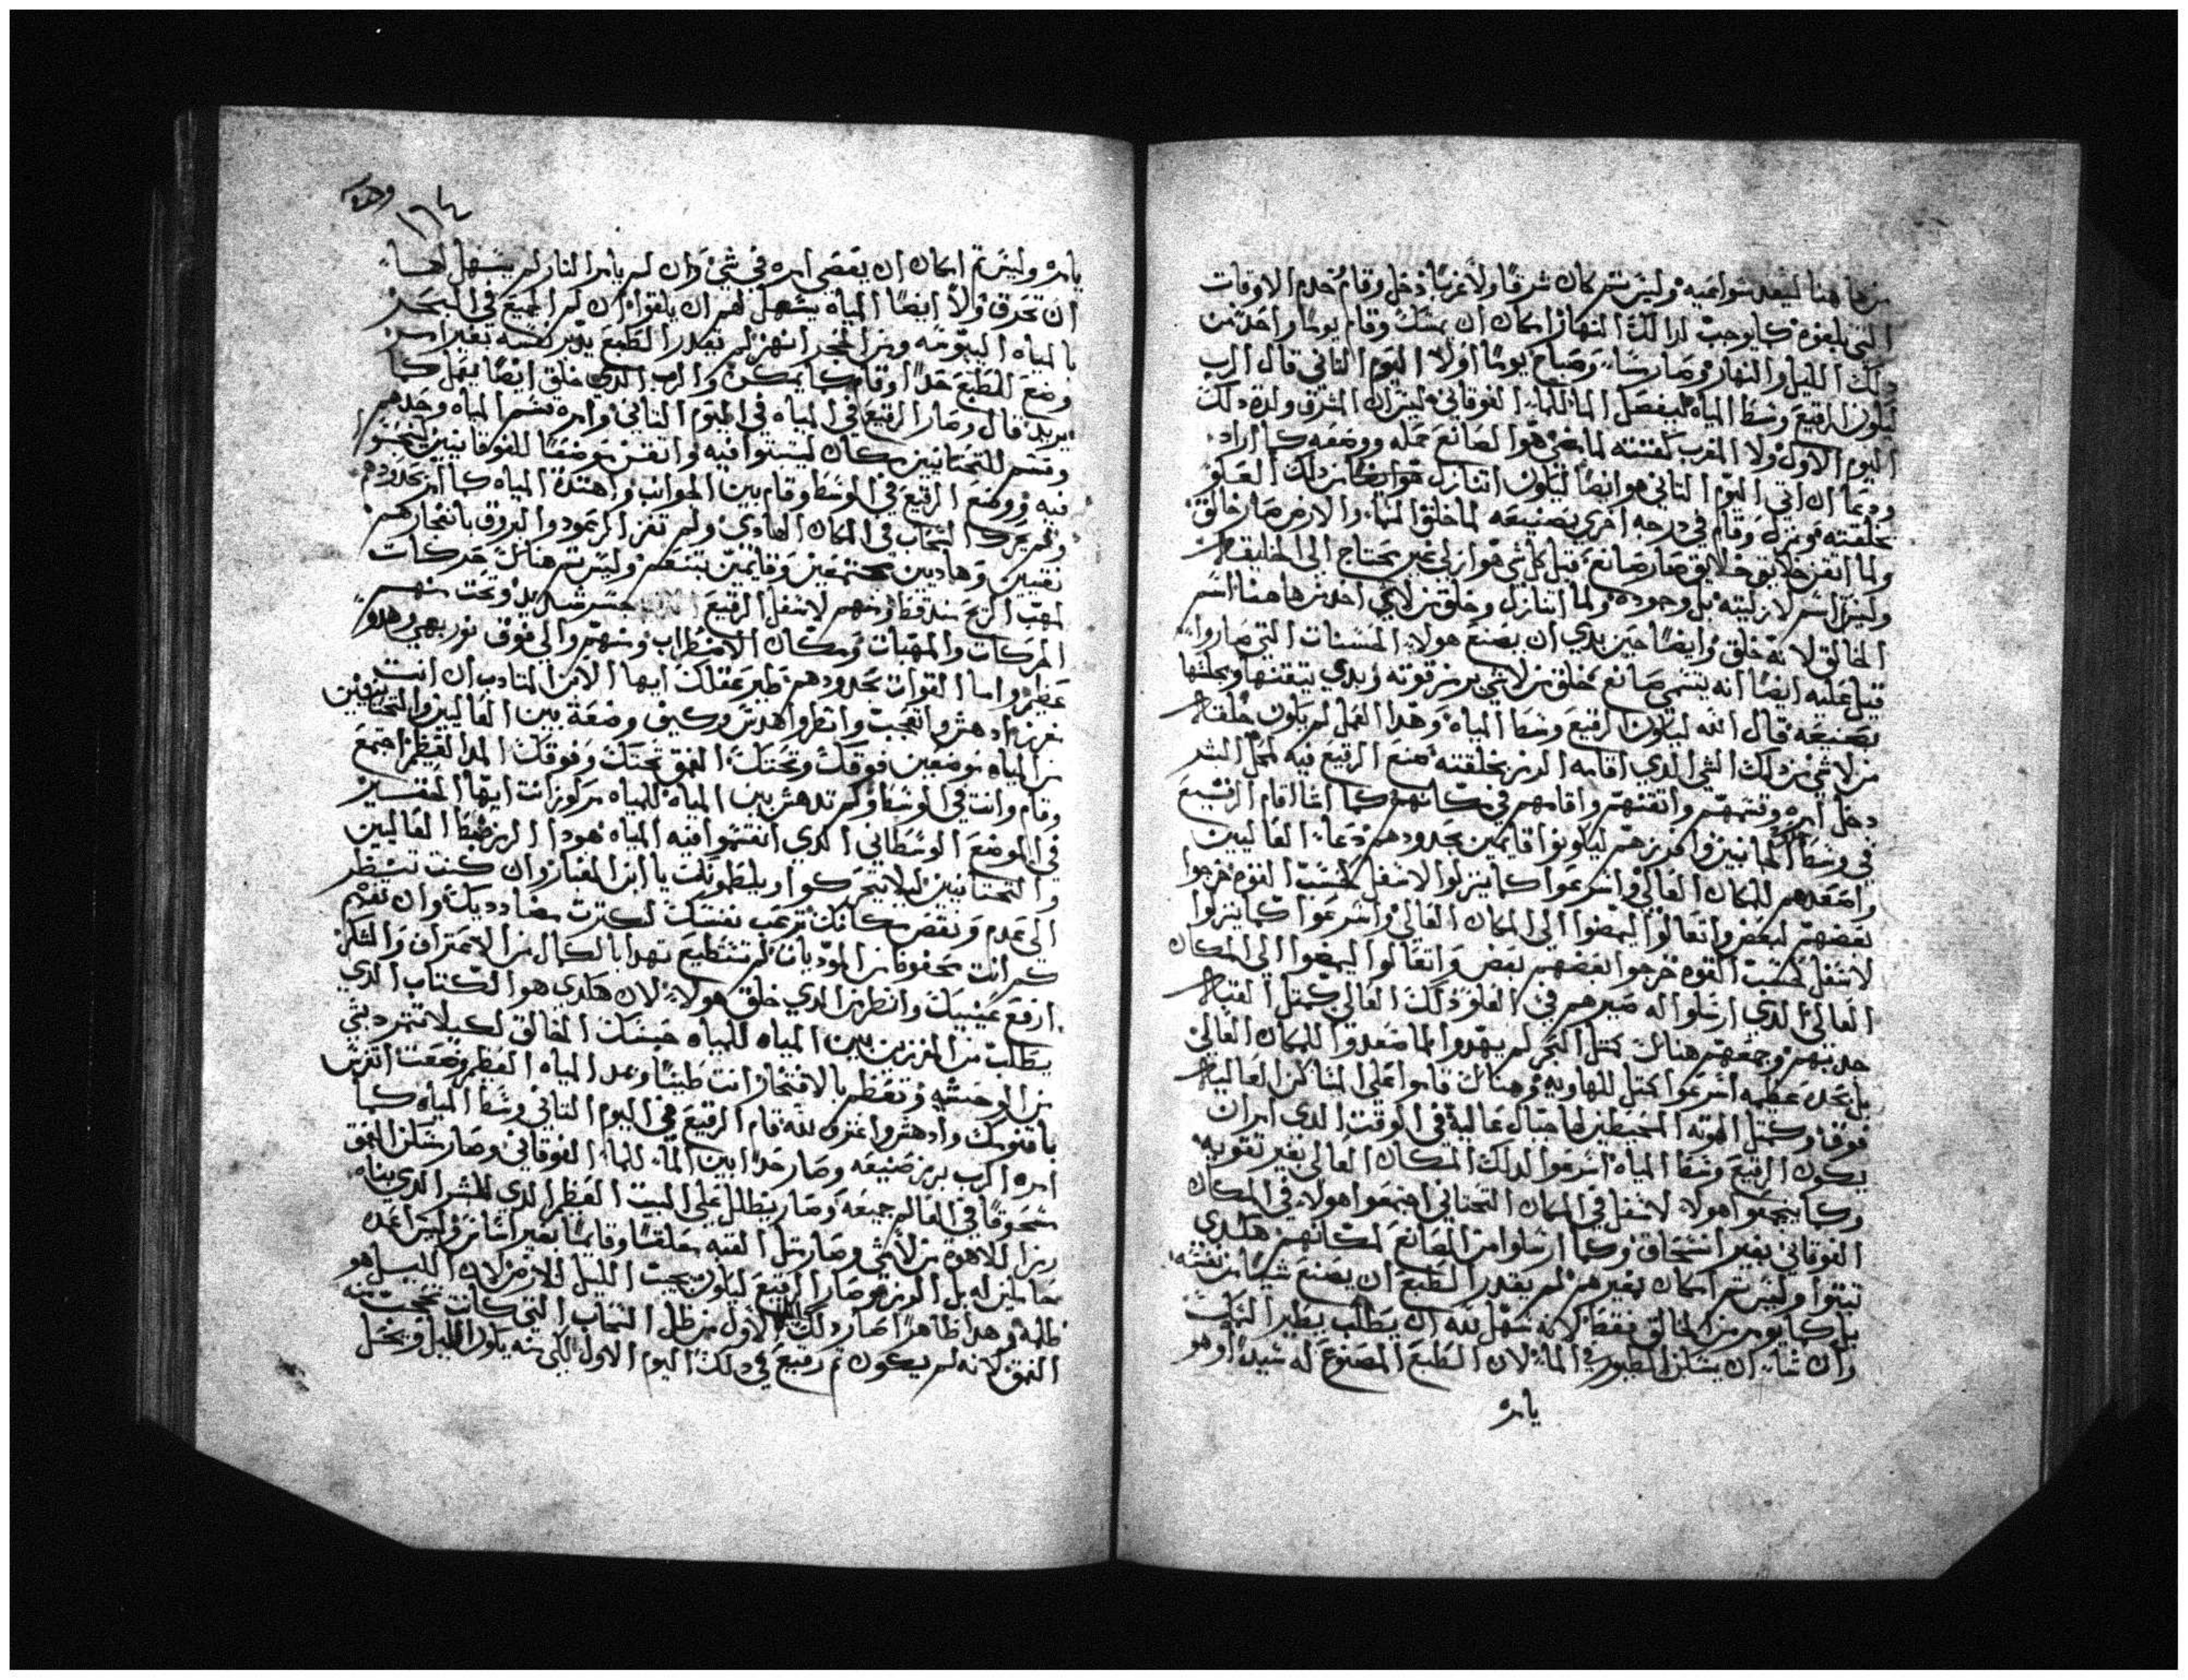 من ها هنا ليبعد نواحيه وليس ثم كان شرقا ولا غربا دخل وقام خدم الاوقات
التي بلغوه كما يوجب لدالك النهار امكان ان يمسك وقام يوما واحد من
دلك الليل والنهار وصار مسا وصباح يوما اولا اليوم التاني قال الرب
ليكون الرقيع وسط المياه ليفصل الما للما الفوقاني ليس ان المشرق ولده دلك
اليوم الاول ولا المغرب لفتته لما مضى هوا الصانع حمله ووضعه كما اراد
ودعا ان اتي اليوم التاني هو ايضا ليكون اتنازل هو ايضا من دلك العلو
بخلقته ونزل وقام في درجه اخرى بصنيعه لما خلق السما والارض صار خالق
ولما اتقن خلايق خلايق صار صانع قبل كل شي هو ازلي غير محتاج الى الخليقه
وليس اسم لازليته بل وجوده ولما اتنازل وخلق من لا شي احدث ها هنا اسم
الخالق لانه خلق وايضا حين بدي ان يصنع هولا الحسنات التي صاروا
قيل عليه ايضا انه يتسمى صانع خلق من لا شي بر من قوته وبدي يتقنها ويجليها
بصنيعه قال الله ليكون الرقيع وسط المياه وهدا العمل لم يكون خلقه
من لا شي من دلك الشي الدي اقامه الرمز بخلقته صنع الرقيع فيه لمحل الستر
دخل امره وقسمهم واتقنهم واقامهم في مكانهم كما اشا اقام الرقيع
في وسط الجانبين وافرزهم ليكونوا قايمين بحدودهم دعا العاليين
واصعدهم للمكان العالي واسرعوا كما ينزلوا الاسفل لحسب القوه خرجوا
بعضهم لبعض واتعالوا ليمضوا الى المكان العالي واسرعوا كما ينزلوا
لاسفل لحسب القوه خرجوا بعضهم بعض واتعالوا ليمضوا الى المكان
العالي الدي ارسلوا له مسيرهم في العلو دلك العالي كمتل القبه
جدبهم وجمعهم هنالك كمتل البحر لم يهدوا لما صعدوا للمكان العالي
بل بحده عظيمه اسرعوا كمتل للهاويه وهنالك قاموا على المساكن العاليه
فوق وكمتل الهوته المحيطين لها جبال عاليه في الوقت الدي امر ان
يكون الرقيع وسط المياه اسرعوا لدلك المكان العالي بغير تعويه
وكما يتجمعوا هولا لاسفل في المكان التحتاني اجتمعوا هولا في المكان
الفوقاني بغير انسحاق وكما ارسلوا من الصانع لمكانهم هكدي
تبتوا وليس ثم امكان بغيرهم لم يقدر الطبع ان يصنع شيا من نفسه
بل كما يومر من الخالق فقط لانه سهل لله ان يطلب يطير التراب
وان شا ان يسكن الطيور في الما لان الطبع المصنوع له سيدا وهو
يامره
وحده
١٦٤
يامره وليس ثم امكان ان يعصى امره في شي وان لم يامر النار لم يسهل لها
ان تحرق ولا ايضا المياه يسهل لهم ان يلقوا ان لم الجميع في البحر
بالمياه البيومه ومن الحجر انهر لم يقدر الطبع يدبر نفسه بغير امر من
وضع للطبع حدا وقام كما يمكن والرب الدي خلق ايضا يفعل كما
يريد قال وصار الرقيع في المياه في اليوم التاني وامره قسم المياه وحدهم
وقسم للتحتانيين مكان ليستوا فيه واتقن موضعا للفوقانيين ليجتمعوا
فيه ووضع الرقيع في الوسط وقام بين الجوانب واهتدت المياه كما امر بحدودهم
ولم يتحرك السحاب في المكان الهادي ولم تفز الرعود والبروق بانفجارهم
نقيين وهاديين مجتمعين وقايمين بتنعم وليس ثم هنالك حركات
لمهب الريح سند فقط ومنهم لاسفل الرقيع جسر شديد وتحت منهم
الحركات والمهبات ومكان الاضطراب ومنهم والي فوق نور بهي وهدو
عظيم واما القوات بحدودهم طير عقلك ايها الابن المتادب ان انت
غزير ادهش واتعجب وانظروا هدس وكيف وضعه بين العاليين والتحتانيين
من المياه موضعين فوقك وتحتك العمق تحتك وفوقك المدا العظيم اجتمع
وقام وانت في الوسط ولم تدهش بين المياه للمياه مركوز انت ايها المفتقر
في الموضع الوسطاني الدي انقسموا فيه المياه هودا الرمز ضبط العاليين
والتحتانيين ليلا يتحركوا ويلطونك يا ابن الغبار وان كنت تنتظر
الى عدم ونقص مكانك ترعب نفسك لكترت مضاددينك وان تفهم
كم انت محفوظ من الموديات لم تستطيع تهدا بالكمال من الاعتراف والشكر
ارفع عينيك وانظر من الدي خلق هولا لان هكدي هو الكتاب الدي
يطلب من الحزين بين المياه للمياه حبسك الخالق لكيلا تتمرد بشي
من الوحشيه وتعظم بالافتخار انت طينا وعد المياه العظم وضعت اتفرس
باقنومك وادهش واعترف لله قام الرقيع في اليوم التاني وسط المياه كما
امره الرب برمز صنيعه وصار حدا بين الما للما الفوقاني وصار ساكن العمق
مسحوقا في العالم جميعه وصار يطلل على البيت العظم الدي للبشر الدي بناه
رمز اللاهوت من لا شي وصار متل القبه معلقا وقايما بغير اساس وليس اعمده
حاملين له بل الرمز هو صار الرقيع ليكون يجيب الليل للارض لان الليل هو
ظلمه وهدا ظاهرا صار دلك الليل الاول من ظل السحاب التي كانت محجب عنه
العمق لانه لم يكون ثم رقيع في دلك اليوم الاول لكي منه يكون الليل ويحتمل